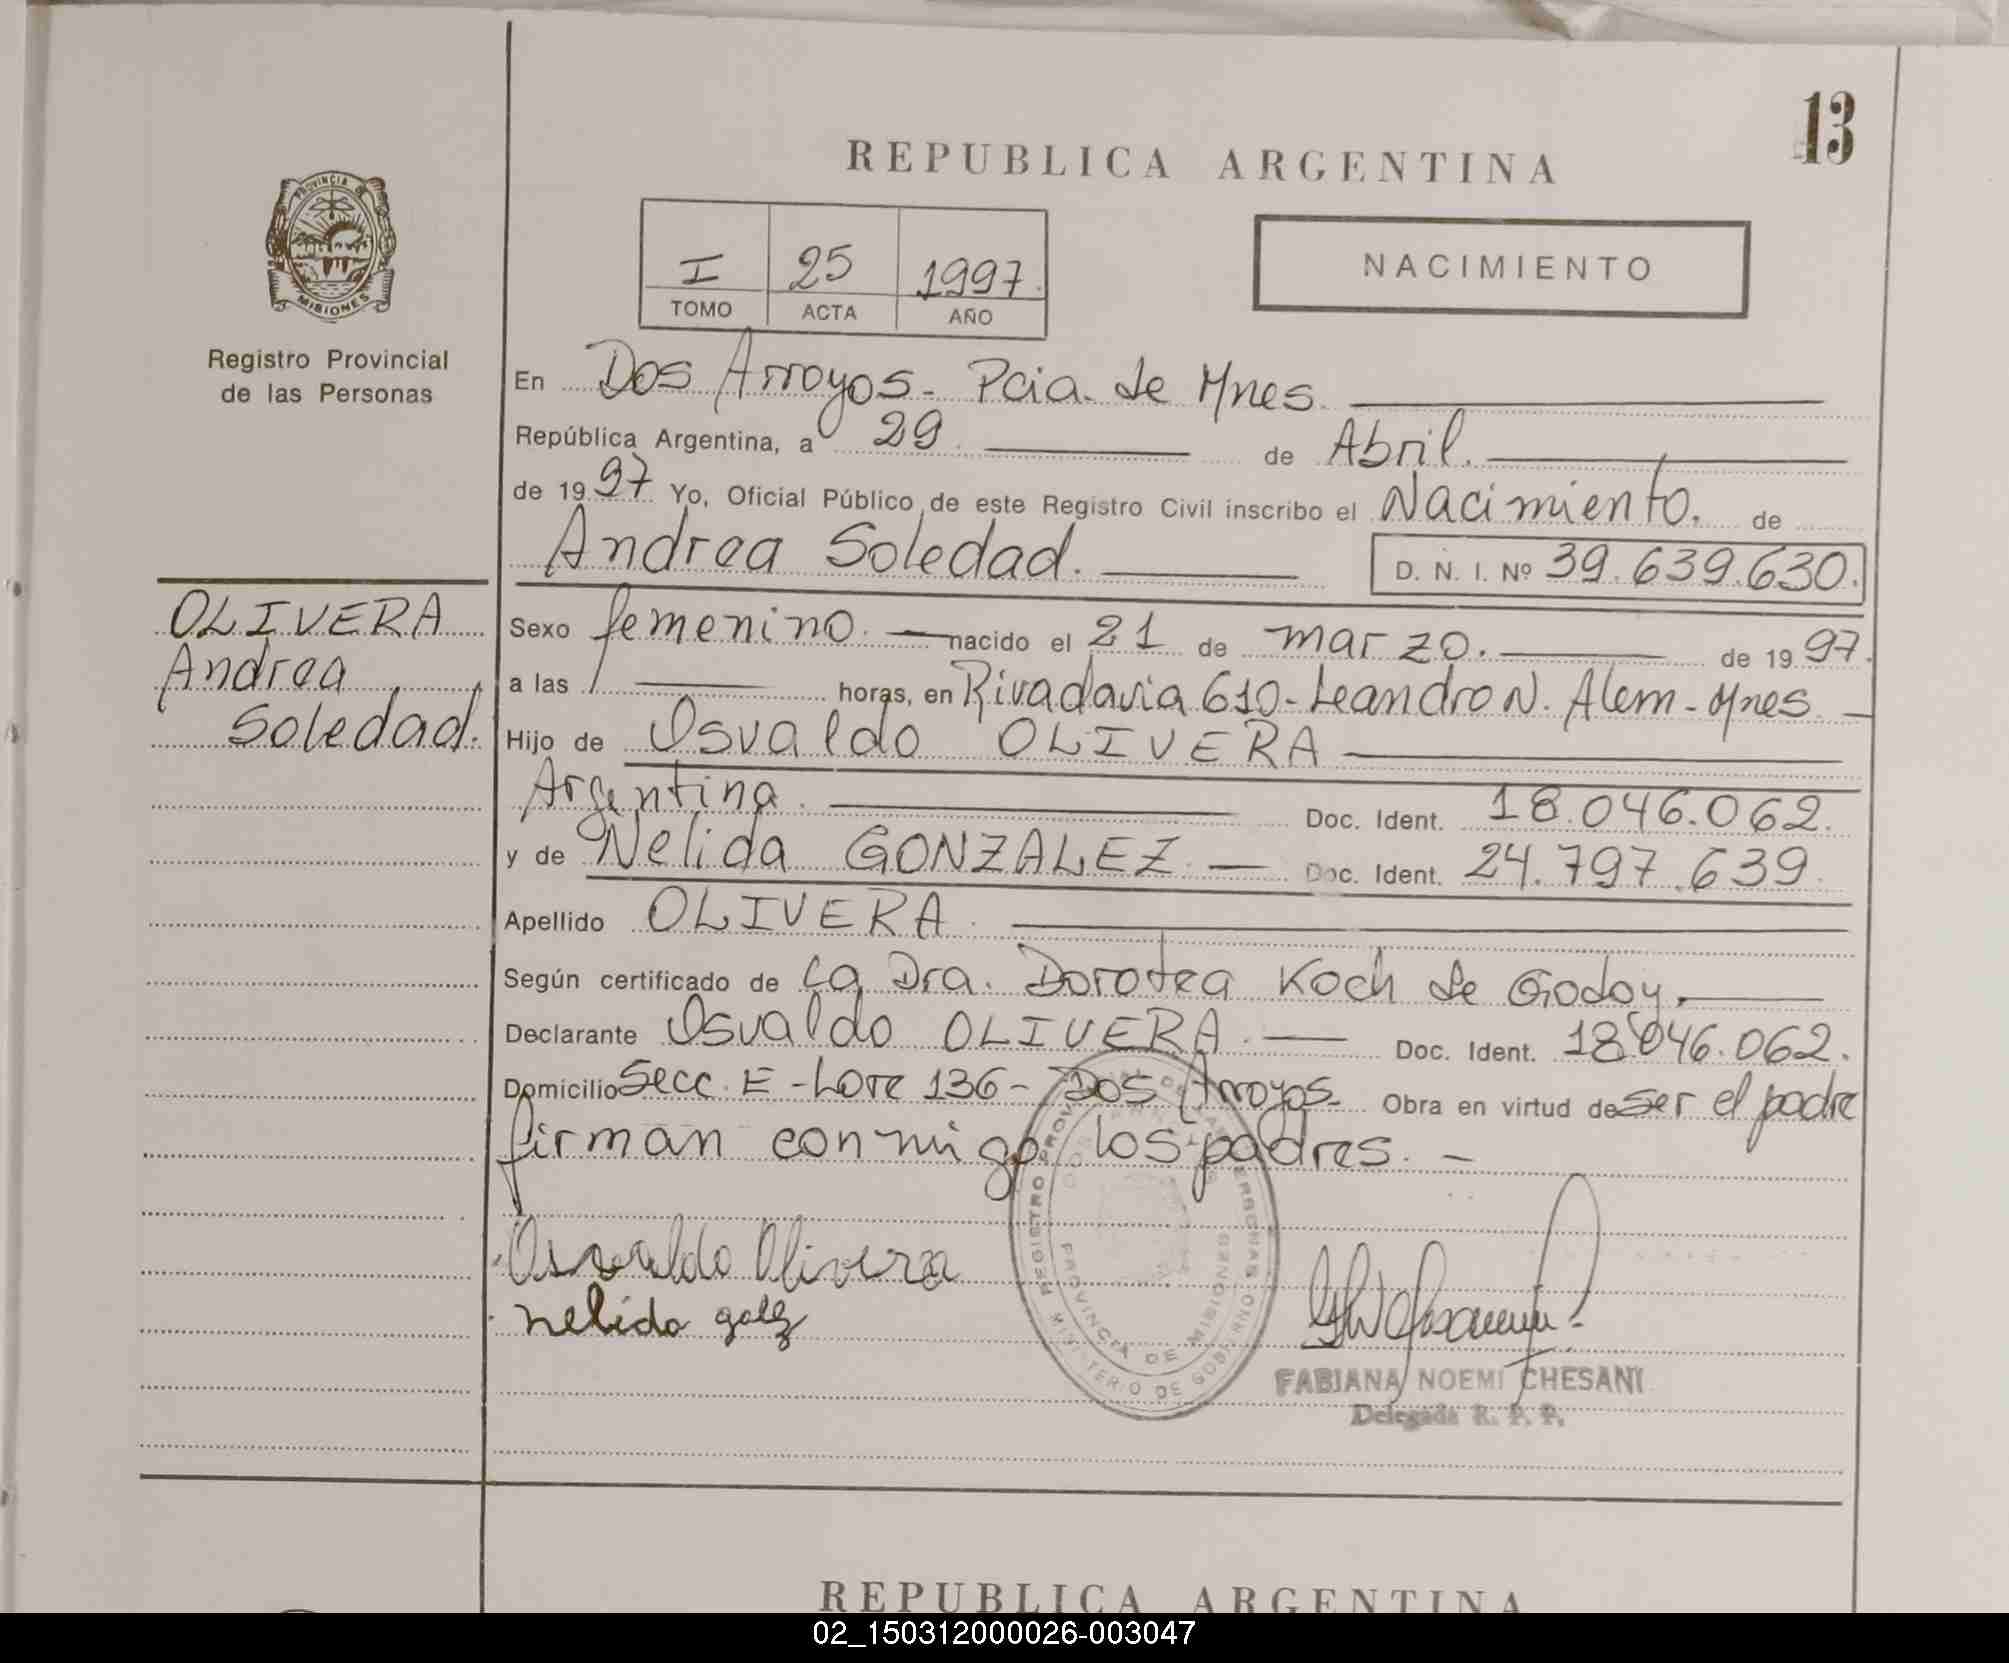 13
REPUBLICA ARGENTINA
PROVINCIA DE
MISIONES
Registro Provincial
de las Personas
I 25 1997.
TOMO ACTA AÑO
NACIMIENTO
En Dos Arroyos - Pcia. de Mnes.
República Argentina, a 29 de Abril.
de 1997 Yo, Oficial Público de este Registro Civil inscribo el Nacimiento. de
Andrea Soledad. D. N. I. Nº 39.639.630.
OLIVERA
Andrea
Soledad.
Sexo femenino. nacido el 21 de marzo. de 1997.
a las horas, en Rivadavia 610 - Leandro N. Alem - Mnes.
Hijo de Osvaldo OLIVERA
Argentina. Doc. Ident. 18.046.062.
y de Nelida GONZALEZ. Doc. Ident. 24.797.639.
Apellido OLIVERA.
Según certificado de la Dra. Dorotea Koch de Godoy.
Declarante Osvaldo OLIVERA. Doc. Ident. 18.046.062.
Domicilio Secc. E - Lote 136 - Dos Arroyos. Obra en virtud de ser el padre
firman conmigo los padres. -
Osvaldo Olivera
nelida golz
REGISTRO PROVINCIAL DE LAS PERSONAS
MINISTERIO DE GOBIERNO
PROVINCIA DE MISIONES
FABIANA NOEMI CHESANI
Delegada R. P. P.
REPUBLICA ARGENTINA
02_150312000026-003047